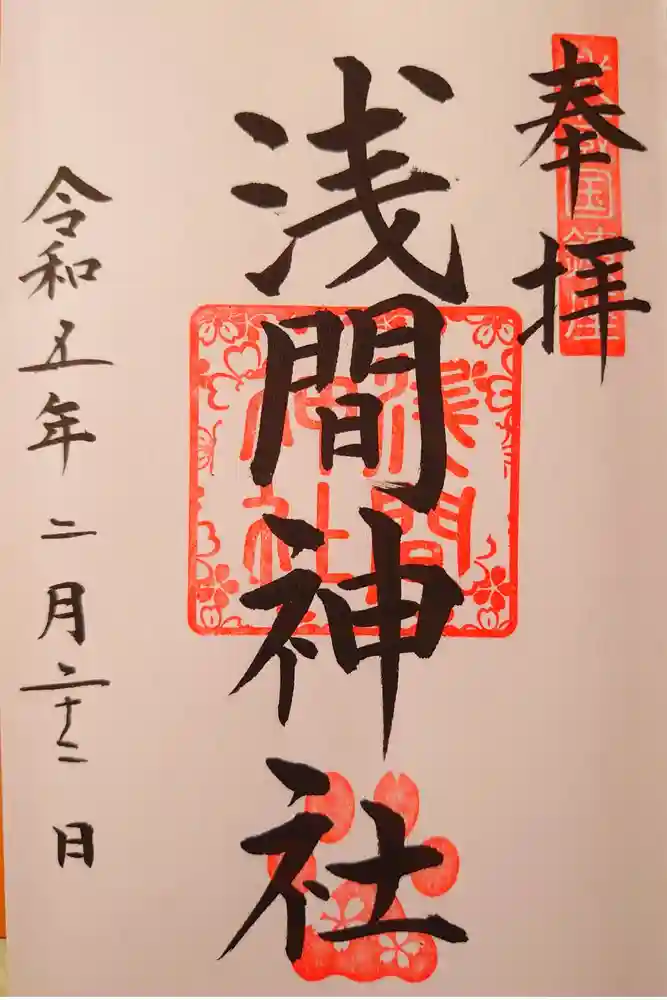 奉拝
浅間神社
浅間
神社
令和五年二月二十二日